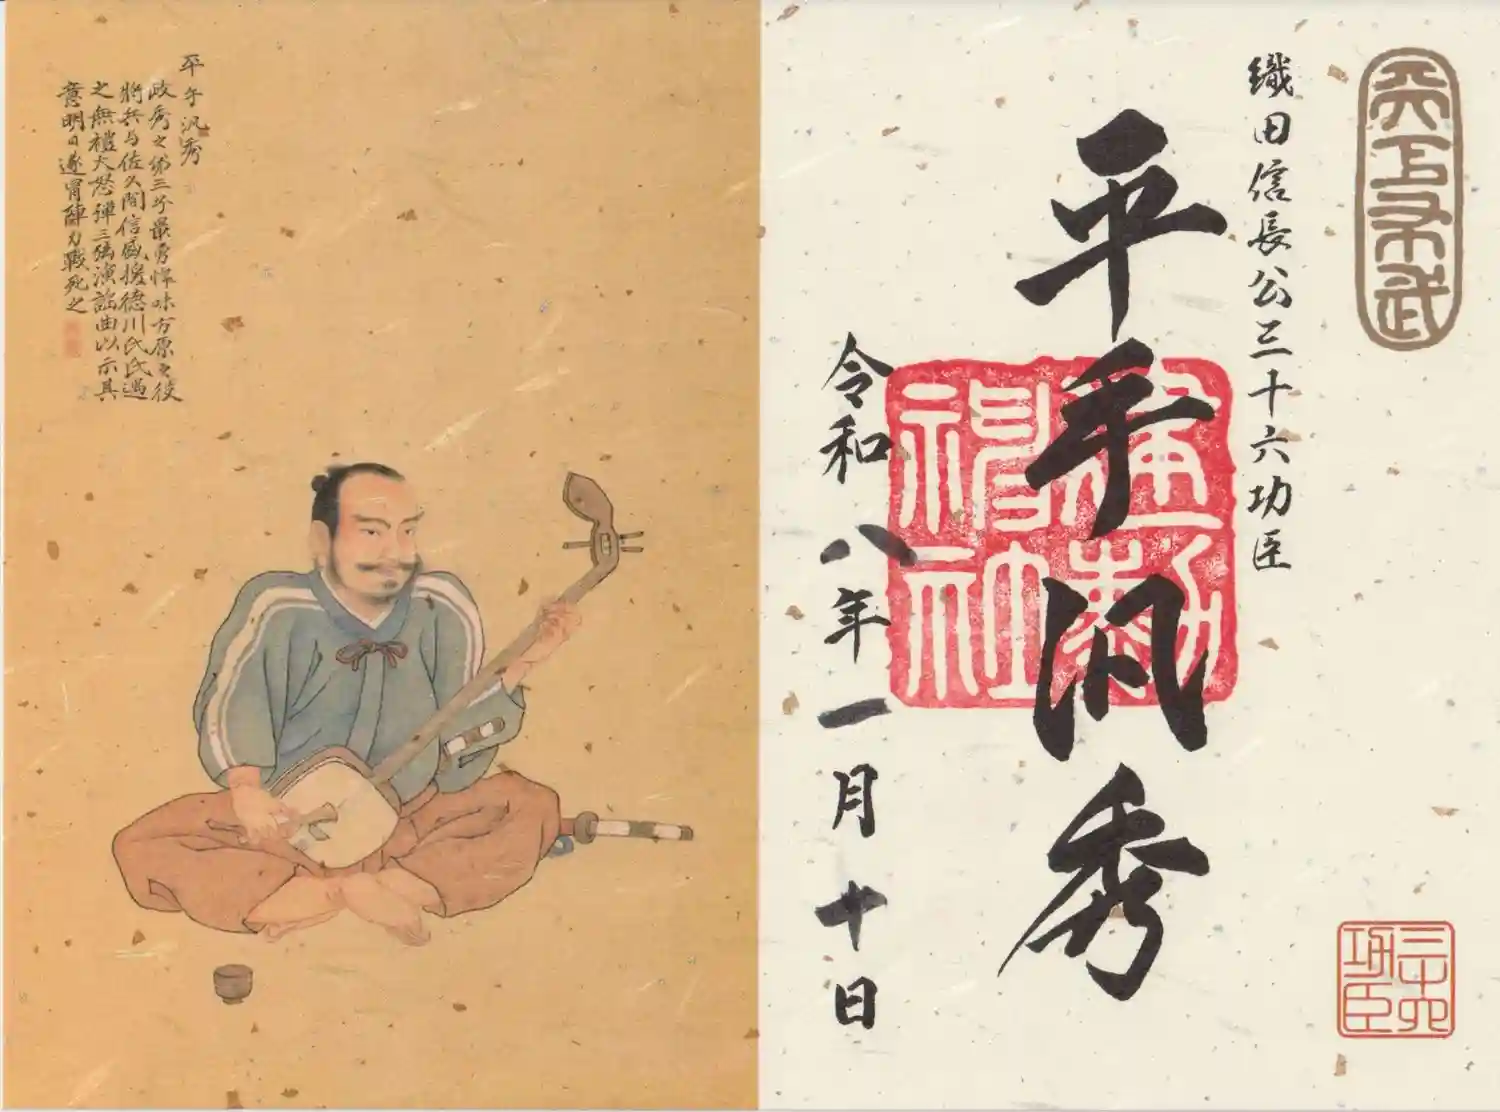 平手汎秀
政秀之第三子最勇悍味方原之役
將兵与佐久間信盛援德川氏氏過
之無禮大怒彈三弦演謡曲以示其
意明日遂冒陣力戰死之
天下布武
織田信長公三十六功臣
平手汎秀
建勲神社
令和八年一月十日
三十六功臣